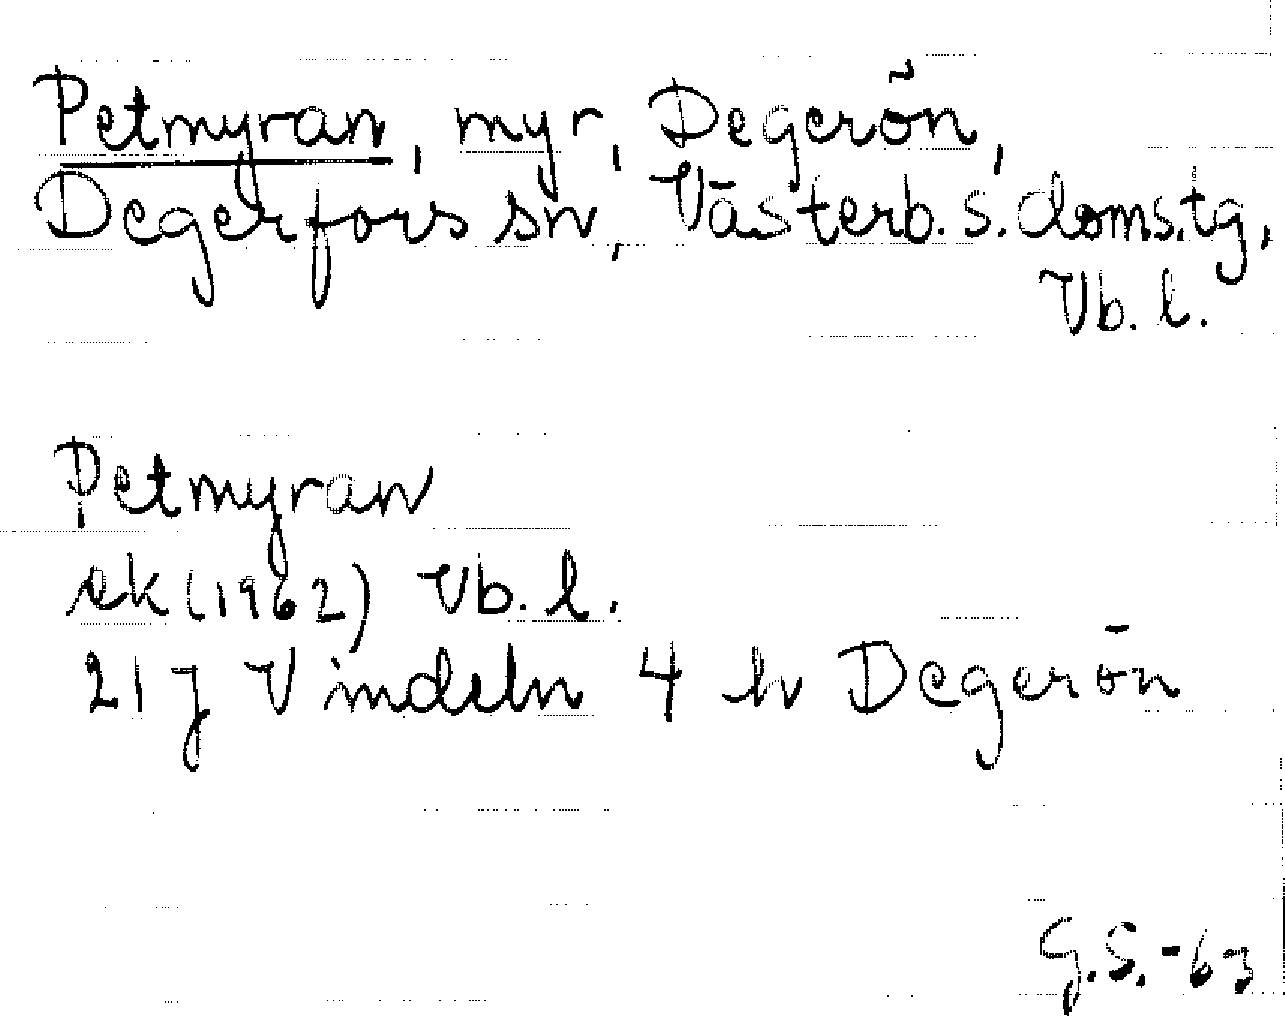 Petmyran, myr, Degerön,
Degerfors sn, Västerb. s. doms.tg,
Vb. l.
Petmyran
ek (1962) Vb. l.
21 J Vindeln 4 h Degerön
G.S. -63